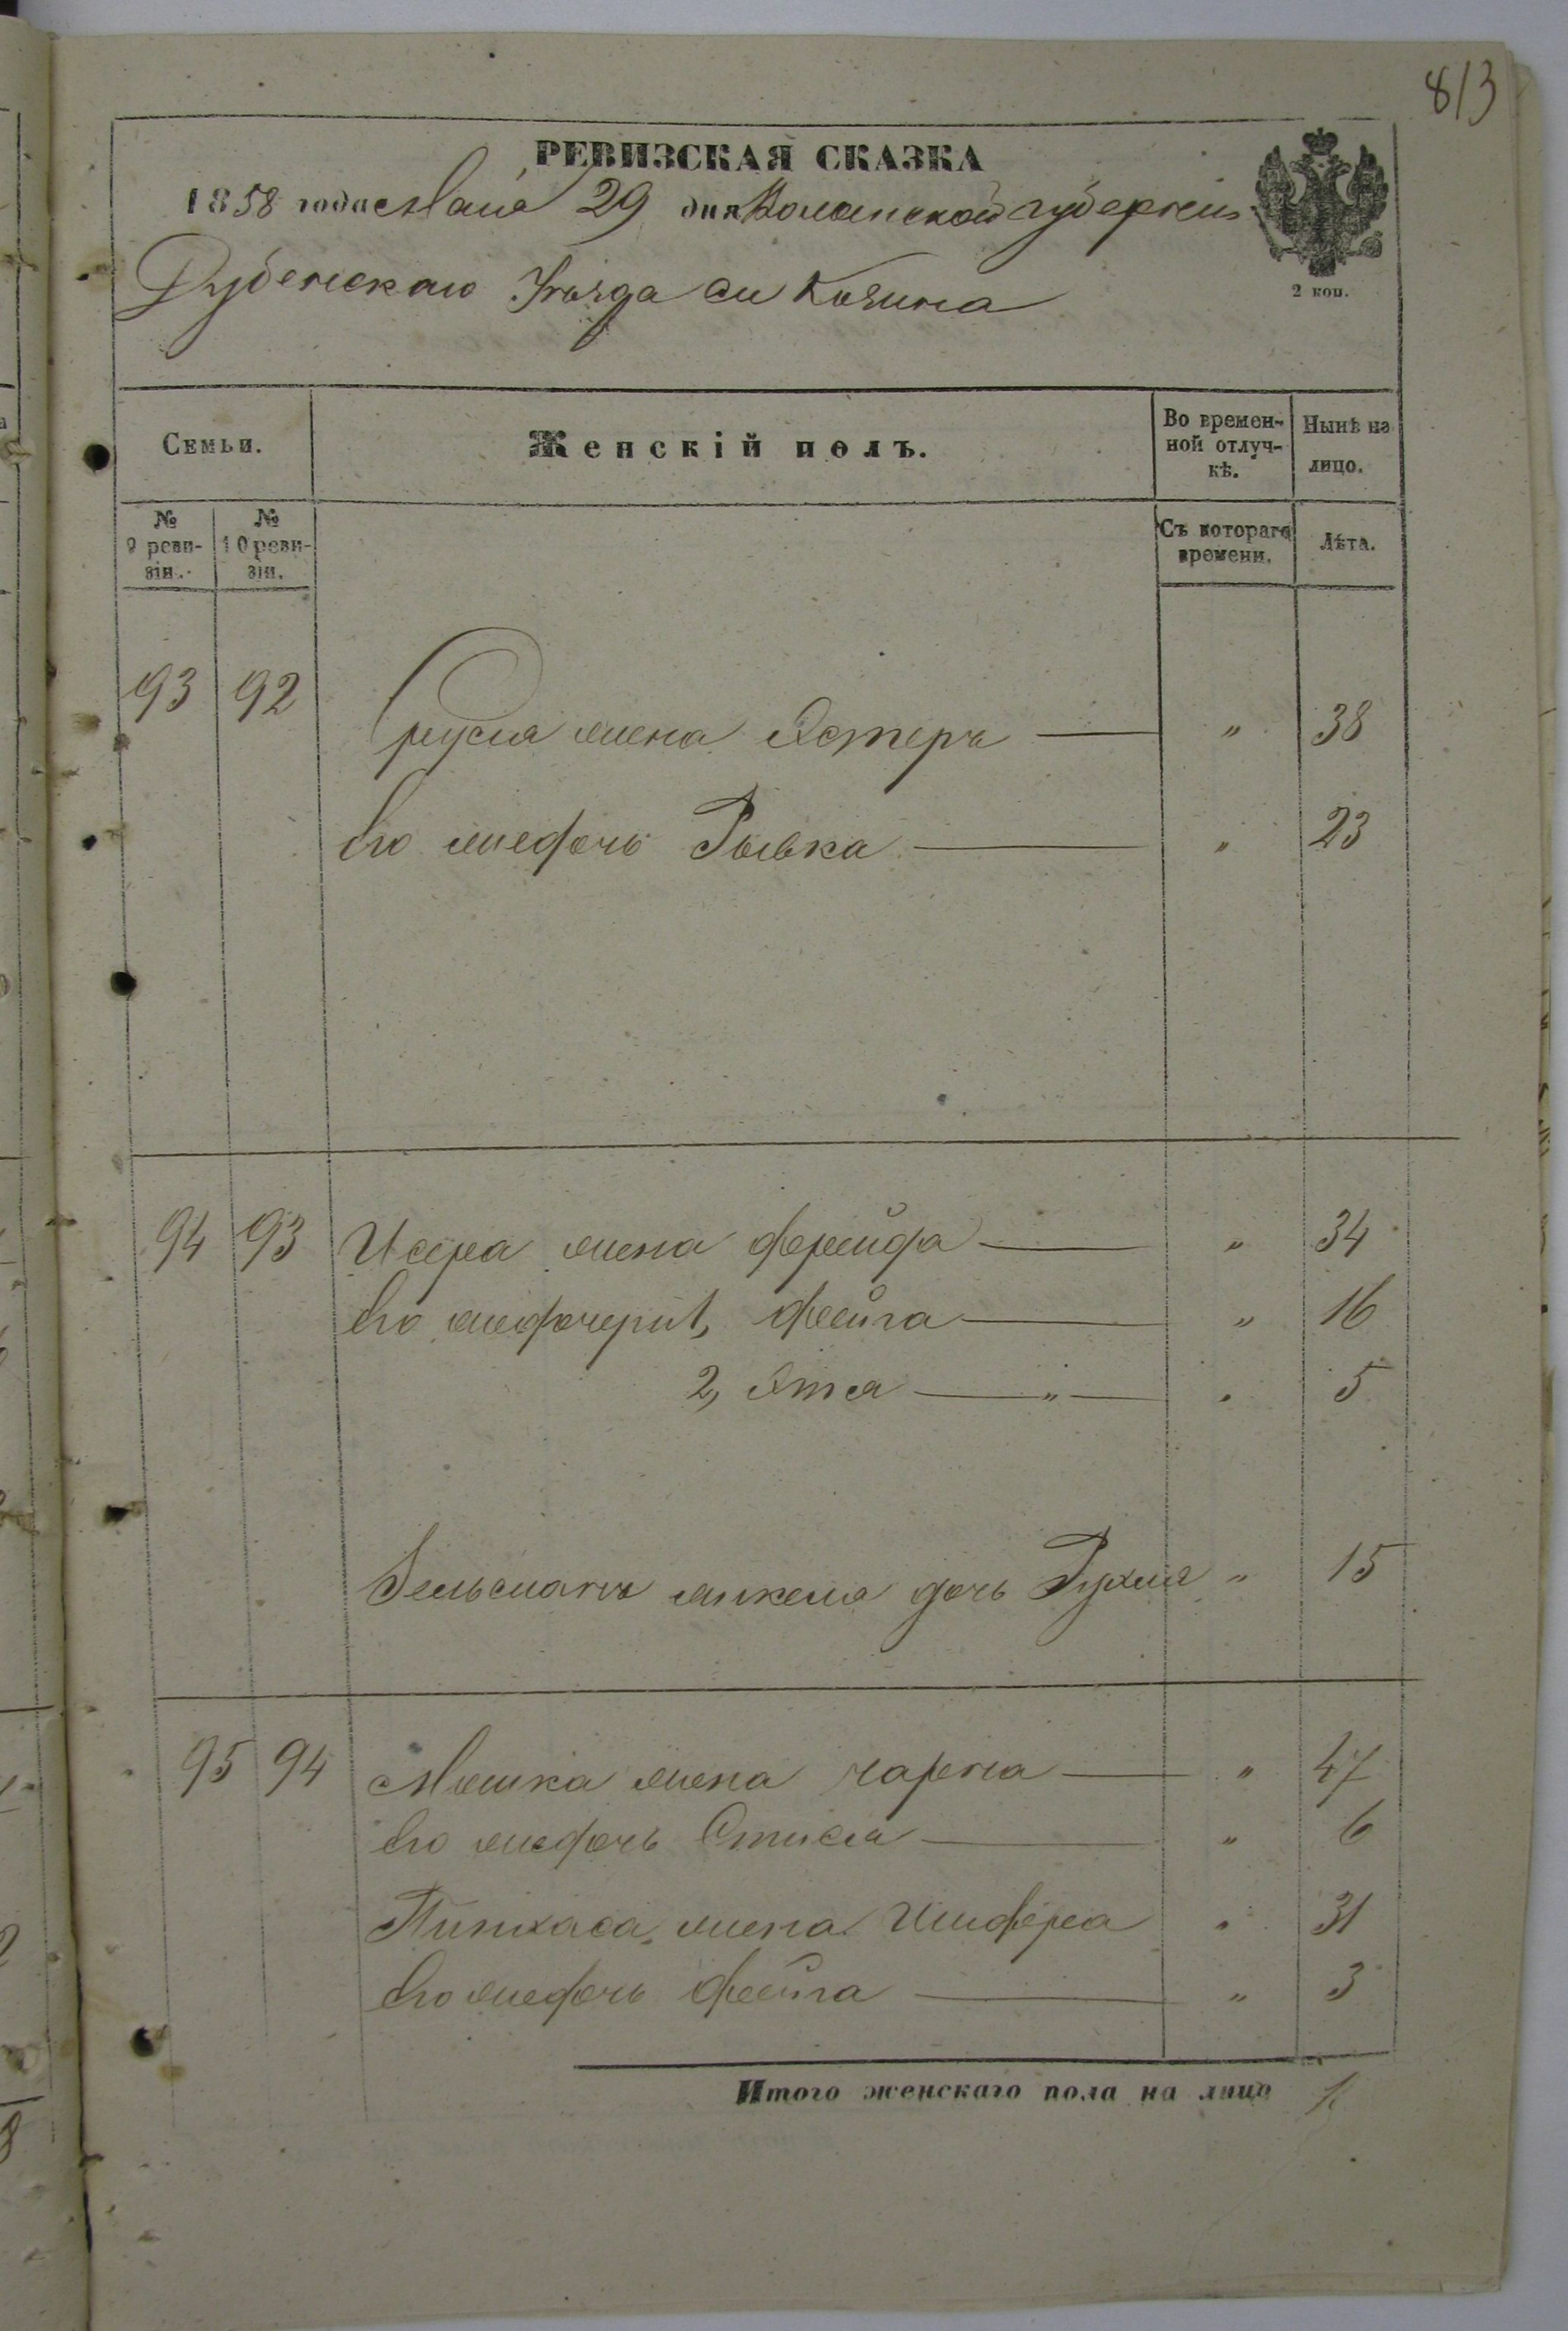 813
РЕВИЗСКАЯ СКАЗКА
1858 года Маія 29 дня Волынской губерніи
Дубенскаго Уѣзда м Козина
2 коп.
Семьи. Женскій полъ. Во временной отлучкѣ. Нынѣ на лицо.
№ 9 ревизіи. № 10 ревизіи. Съ котораго времени. Лѣта.
93 92 жена Эстеръ — " 38
Его же дочь Рывка — " 23
94 93 жена Фрейда — " 34
Его же дочери 1, Фейга — " 16
2, — " — " 5
дочь Рухля " 15
95 94 Мошка жена Чарна — " 47
Его же дочь — " 6
Пинхаса жена " 31
Его же дочь Фейга — " 3
Итого женскаго пола на лицо